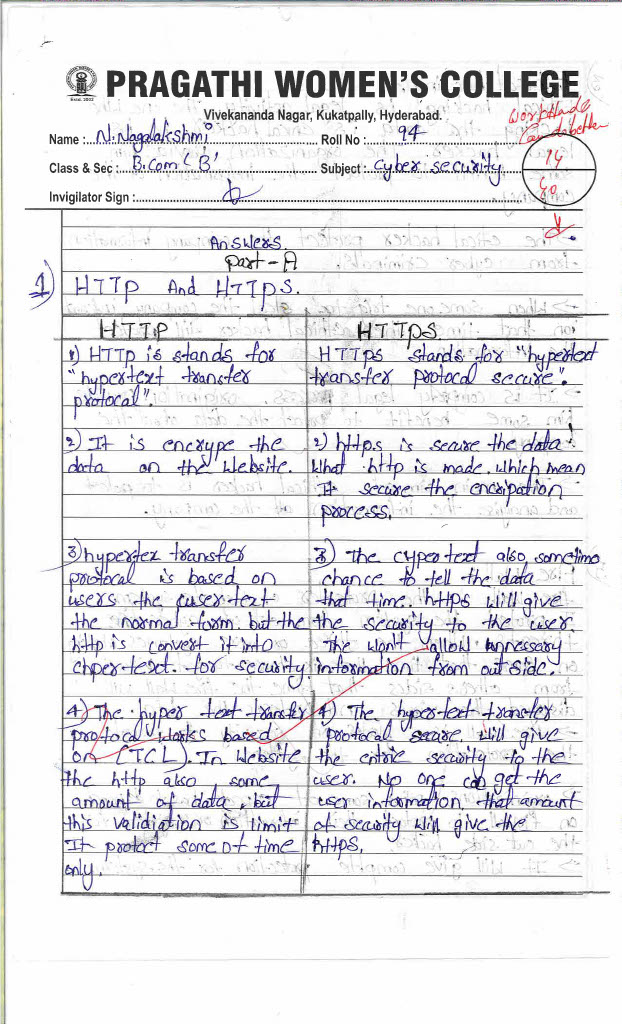 PRAGATHI WOMEN'S COLLEGE
Estd. 2002
Vivekananda Nagar, Kukatpally, Hyderabad.
Work Hard
Can do better
Name : N. Nagalakshmi Roll No : 94
Class & Sec : B.com 'B' Subject : cyber security
14
60
Invigilator Sign :
Answers
part - A
1) HTTP And HTTPS.
HTTP HTTPS
1) HTTP is stands for
"hypertext transfer
protocal".
HTTPS stands for "hypertext
transfer protocal secure".
2) It is encrype the
data on the website.
2) https is secure the data
what http is made. which mean
It secure the encripation
process.
3) hypertex transfer
protocal is based on
users the cusertext
the normal form. but the
http is convert it into
chpertext. for security
3) The cypertext also sometime
chance to tell the data
that time. https will give
the security to the user.
The won't allow unnessary
information from out side.
4) The hyper text transfer
protocal works based
on (TCL). In website
the http also some
amount of data, but
this validiation is limit
It protect some of time
only.
4) The hypertext transfer
protocal secure will give
the entric security to the
user. No one can get the
user information. that amount
of security will give the
https.